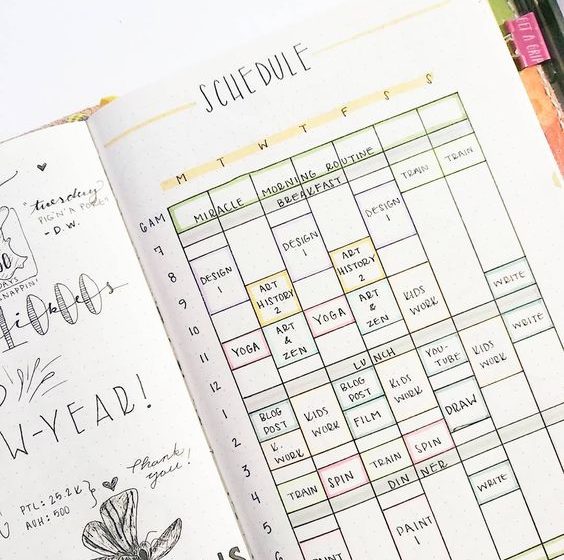 GET A GRIP
SCHEDULE
M T W T F S S
6AM
MIRACLE MORNING ROUTINE
BREAKFAST
TRAIN
TRAIN
7
DESIGN 1
DESIGN 1
DESIGN 1
8
ART HISTORY 2
ART HISTORY 2
9
KIDS WORK
WRITE
10
ART & ZEN
ART & ZEN
11
YOGA
YOGA
WRITE
12
LUNCH
YOU-TUBE
KIDS WORK
1
BLOG POST
KIDS WORK
BLOG POST
KIDS WORK
2
K. WORK
FILM
DRAW
3
TRAIN
SPIN
TRAIN
SPIN
4
DINNER
WRITE
5
PAINT 1
6
"tuesday
PIG'N A POKE"
- D.W.
DAYS
SNAPPIN'
W-YEAR!
Thank you!
PTL: 25.2K
AOH: 500